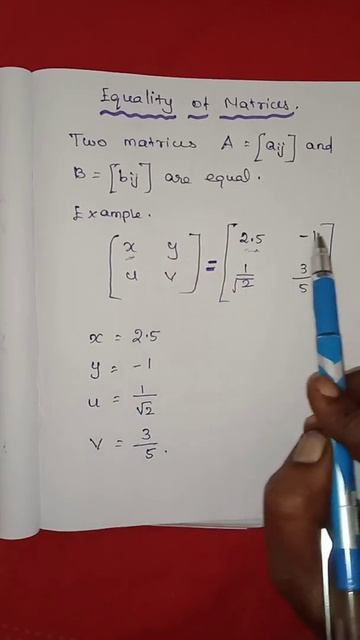 Equality of Matrices.
Two matrices A = [aij] and
B = [bij] are equal.
Example.
[x y
u v] = [2.5 -1
1/√2 3/5]
x = 2.5
y = -1
u = 1/√2
v = 3/5.